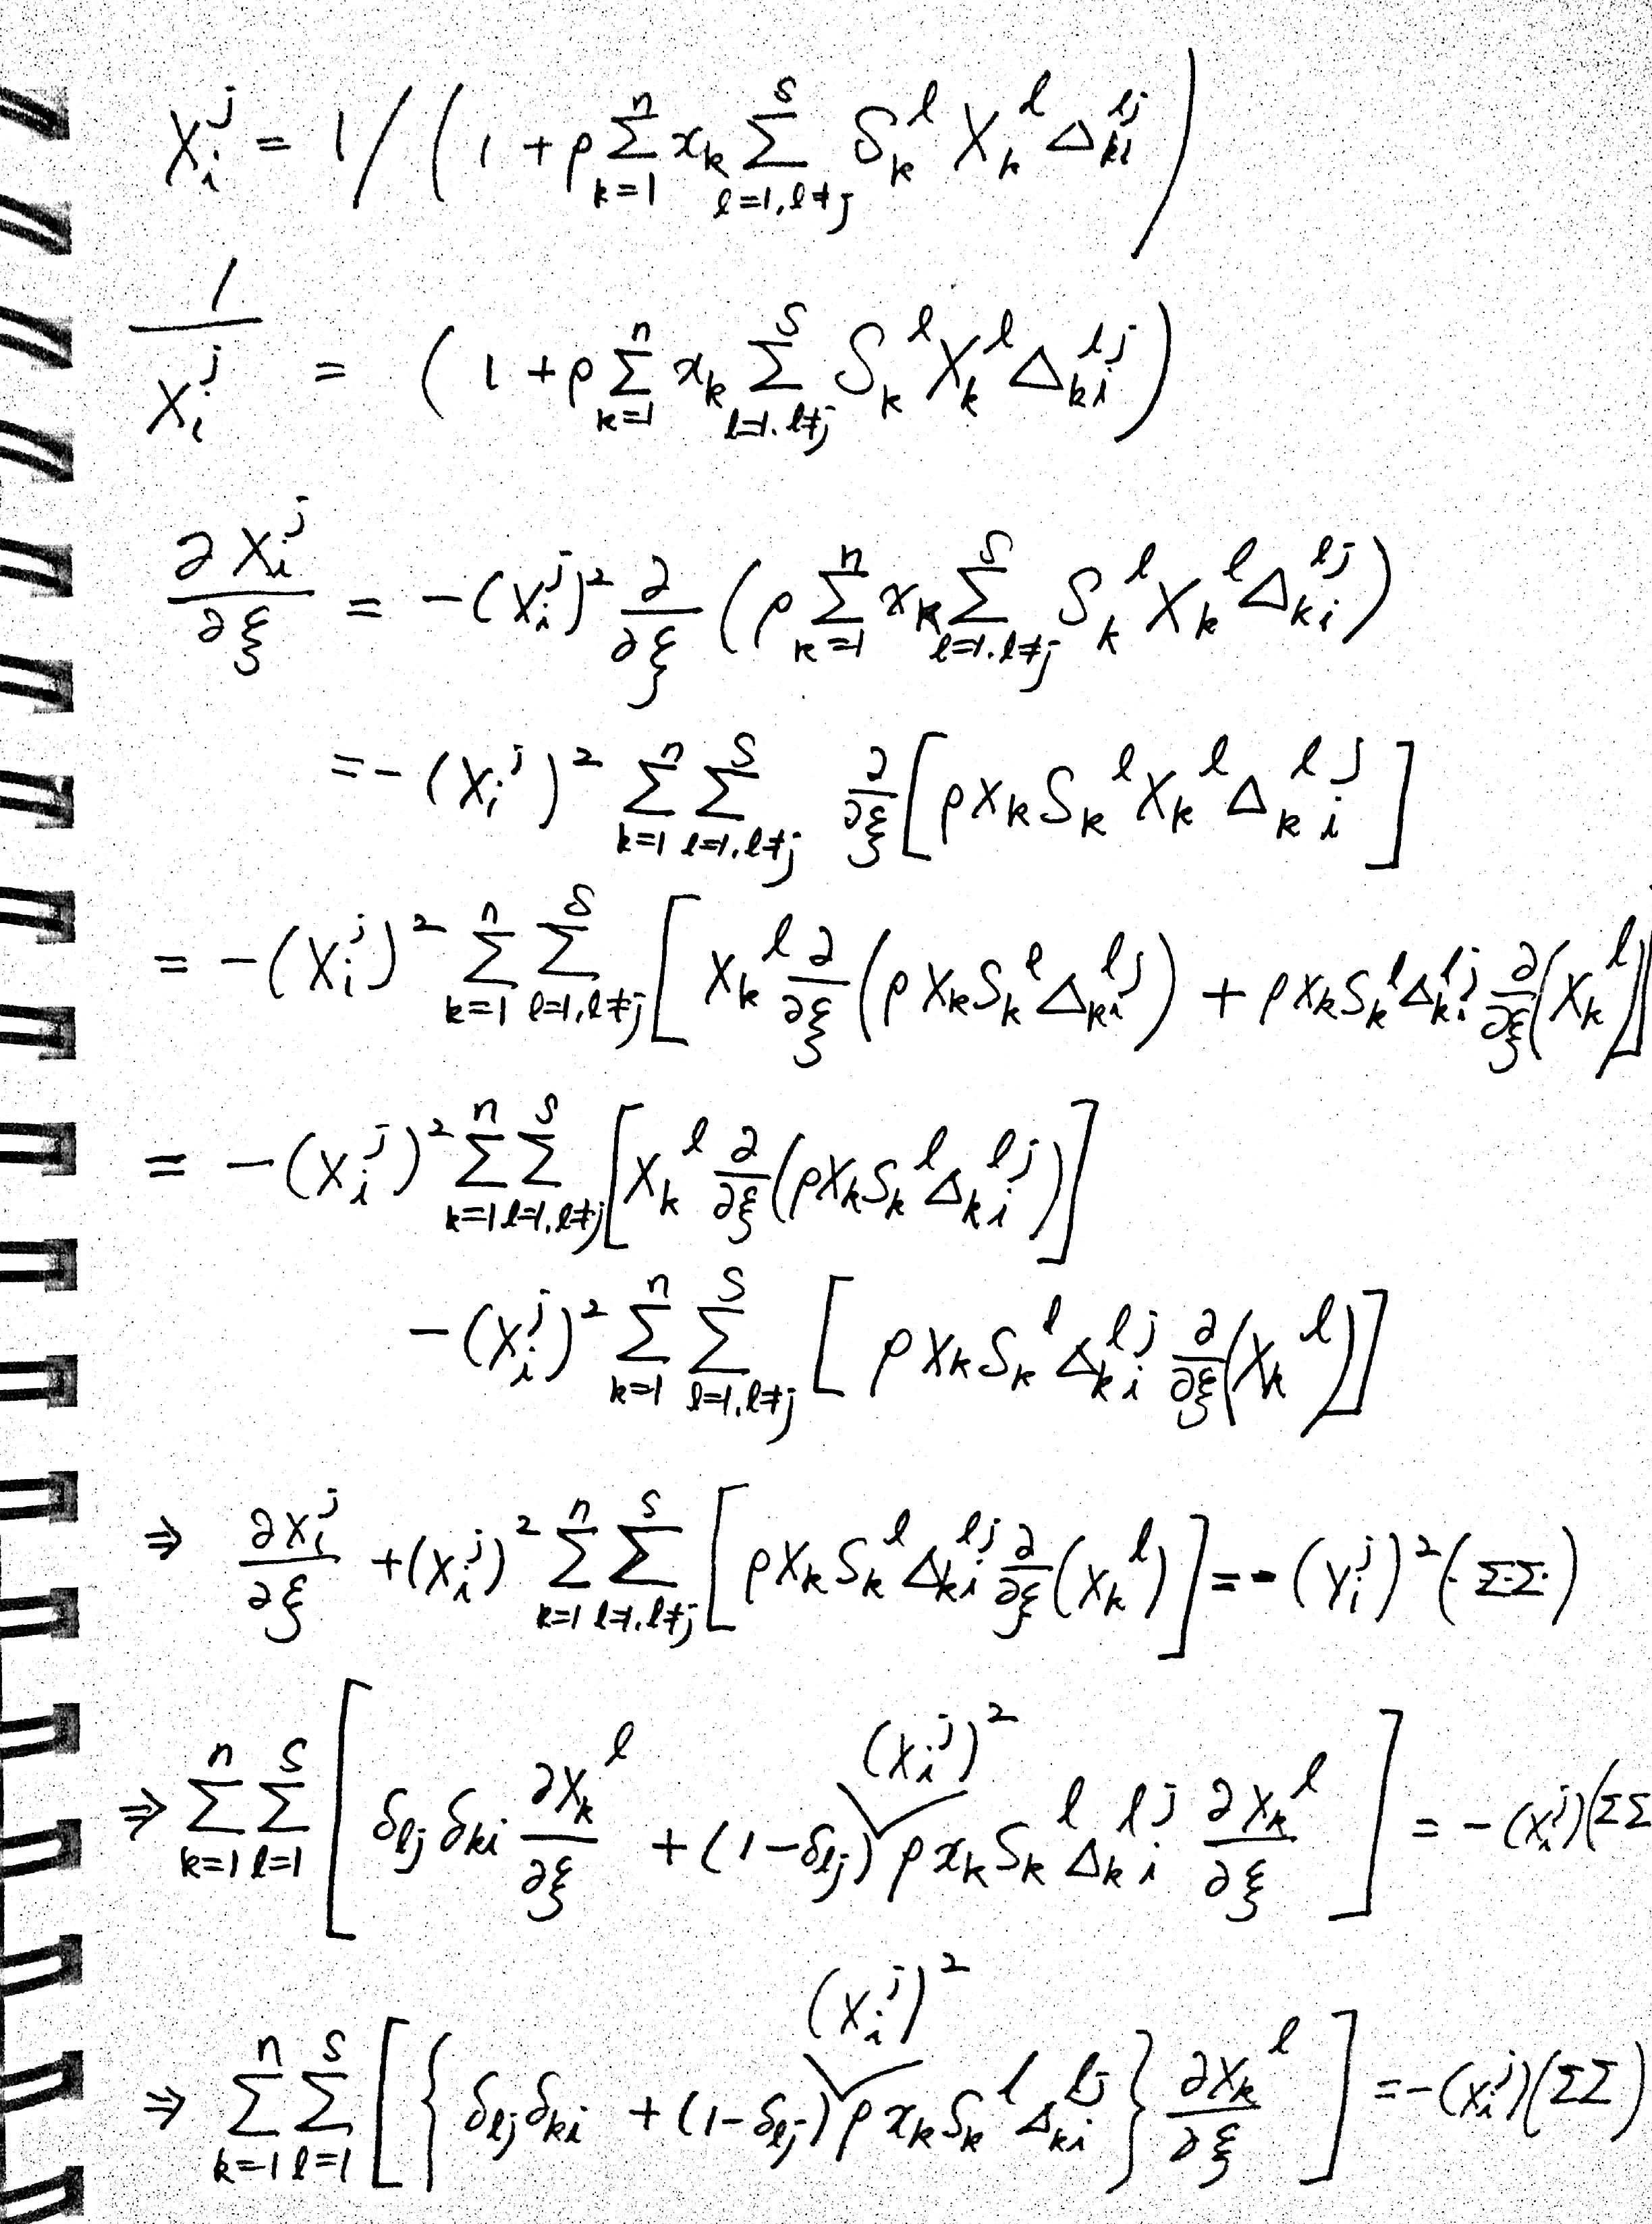 X_i^j = 1 / ( 1 + ρ \sum_{k=1}^{n} x_k \sum_{l=1, l≠j}^{S} S_k^l X_k^l Δ_{ki}^{lj} )
\frac{1}{X_i^j} = ( 1 + ρ \sum_{k=1}^{n} x_k \sum_{l=1, l≠j}^{S} S_k^l X_k^l Δ_{ki}^{lj} )
\frac{∂X_i^j}{∂ξ} = -(X_i^j)^2 \frac{∂}{∂ξ} ( ρ \sum_{k=1}^{n} x_k \sum_{l=1, l≠j}^{S} S_k^l X_k^l Δ_{ki}^{lj} )
= -(X_i^j)^2 \sum_{k=1}^{n} \sum_{l=1, l≠j}^{S} \frac{∂}{∂ξ} [ ρ x_k S_k^l X_k^l Δ_{ki}^{lj} ]
= -(X_i^j)^2 \sum_{k=1}^{n} \sum_{l=1, l≠j}^{S} [ X_k^l \frac{∂}{∂ξ} ( ρ x_k S_k^l Δ_{ki}^{lj} ) + ρ x_k S_k^l Δ_{ki}^{lj} \frac{∂}{∂ξ} ( X_k^l ) ]
= -(X_i^j)^2 \sum_{k=1}^{n} \sum_{l=1, l≠j}^{S} [ X_k^l \frac{∂}{∂ξ} ( ρ x_k S_k^l Δ_{ki}^{lj} ) ]
-(X_i^j)^2 \sum_{k=1}^{n} \sum_{l=1, l≠j}^{S} [ ρ x_k S_k^l Δ_{ki}^{lj} \frac{∂}{∂ξ} ( X_k^l ) ]
⇒ \frac{∂X_i^j}{∂ξ} + (X_i^j)^2 \sum_{k=1}^{n} \sum_{l=1, l≠j}^{S} [ ρ x_k S_k^l Δ_{ki}^{lj} \frac{∂}{∂ξ} ( X_k^l ) ] = -(X_i^j)^2 (ΣΣ)
⇒ \sum_{k=1}^{n} \sum_{l=1}^{S} [ δ_{lj} δ_{ki} \frac{∂X_k^l}{∂ξ} + (1-δ_{lj}) (X_i^j)^2 ρ x_k S_k^l Δ_{ki}^{lj} \frac{∂X_k^l}{∂ξ} ] = -(X_i^j)(ΣΣ
⇒ \sum_{k=1}^{n} \sum_{l=1}^{S} [ { δ_{lj} δ_{ki} + (1-δ_{lj}) (X_i^j)^2 ρ x_k S_k^l Δ_{ki}^{lj} } \frac{∂X_k^l}{∂ξ} ] = -(X_i^j)(ΣΣ)